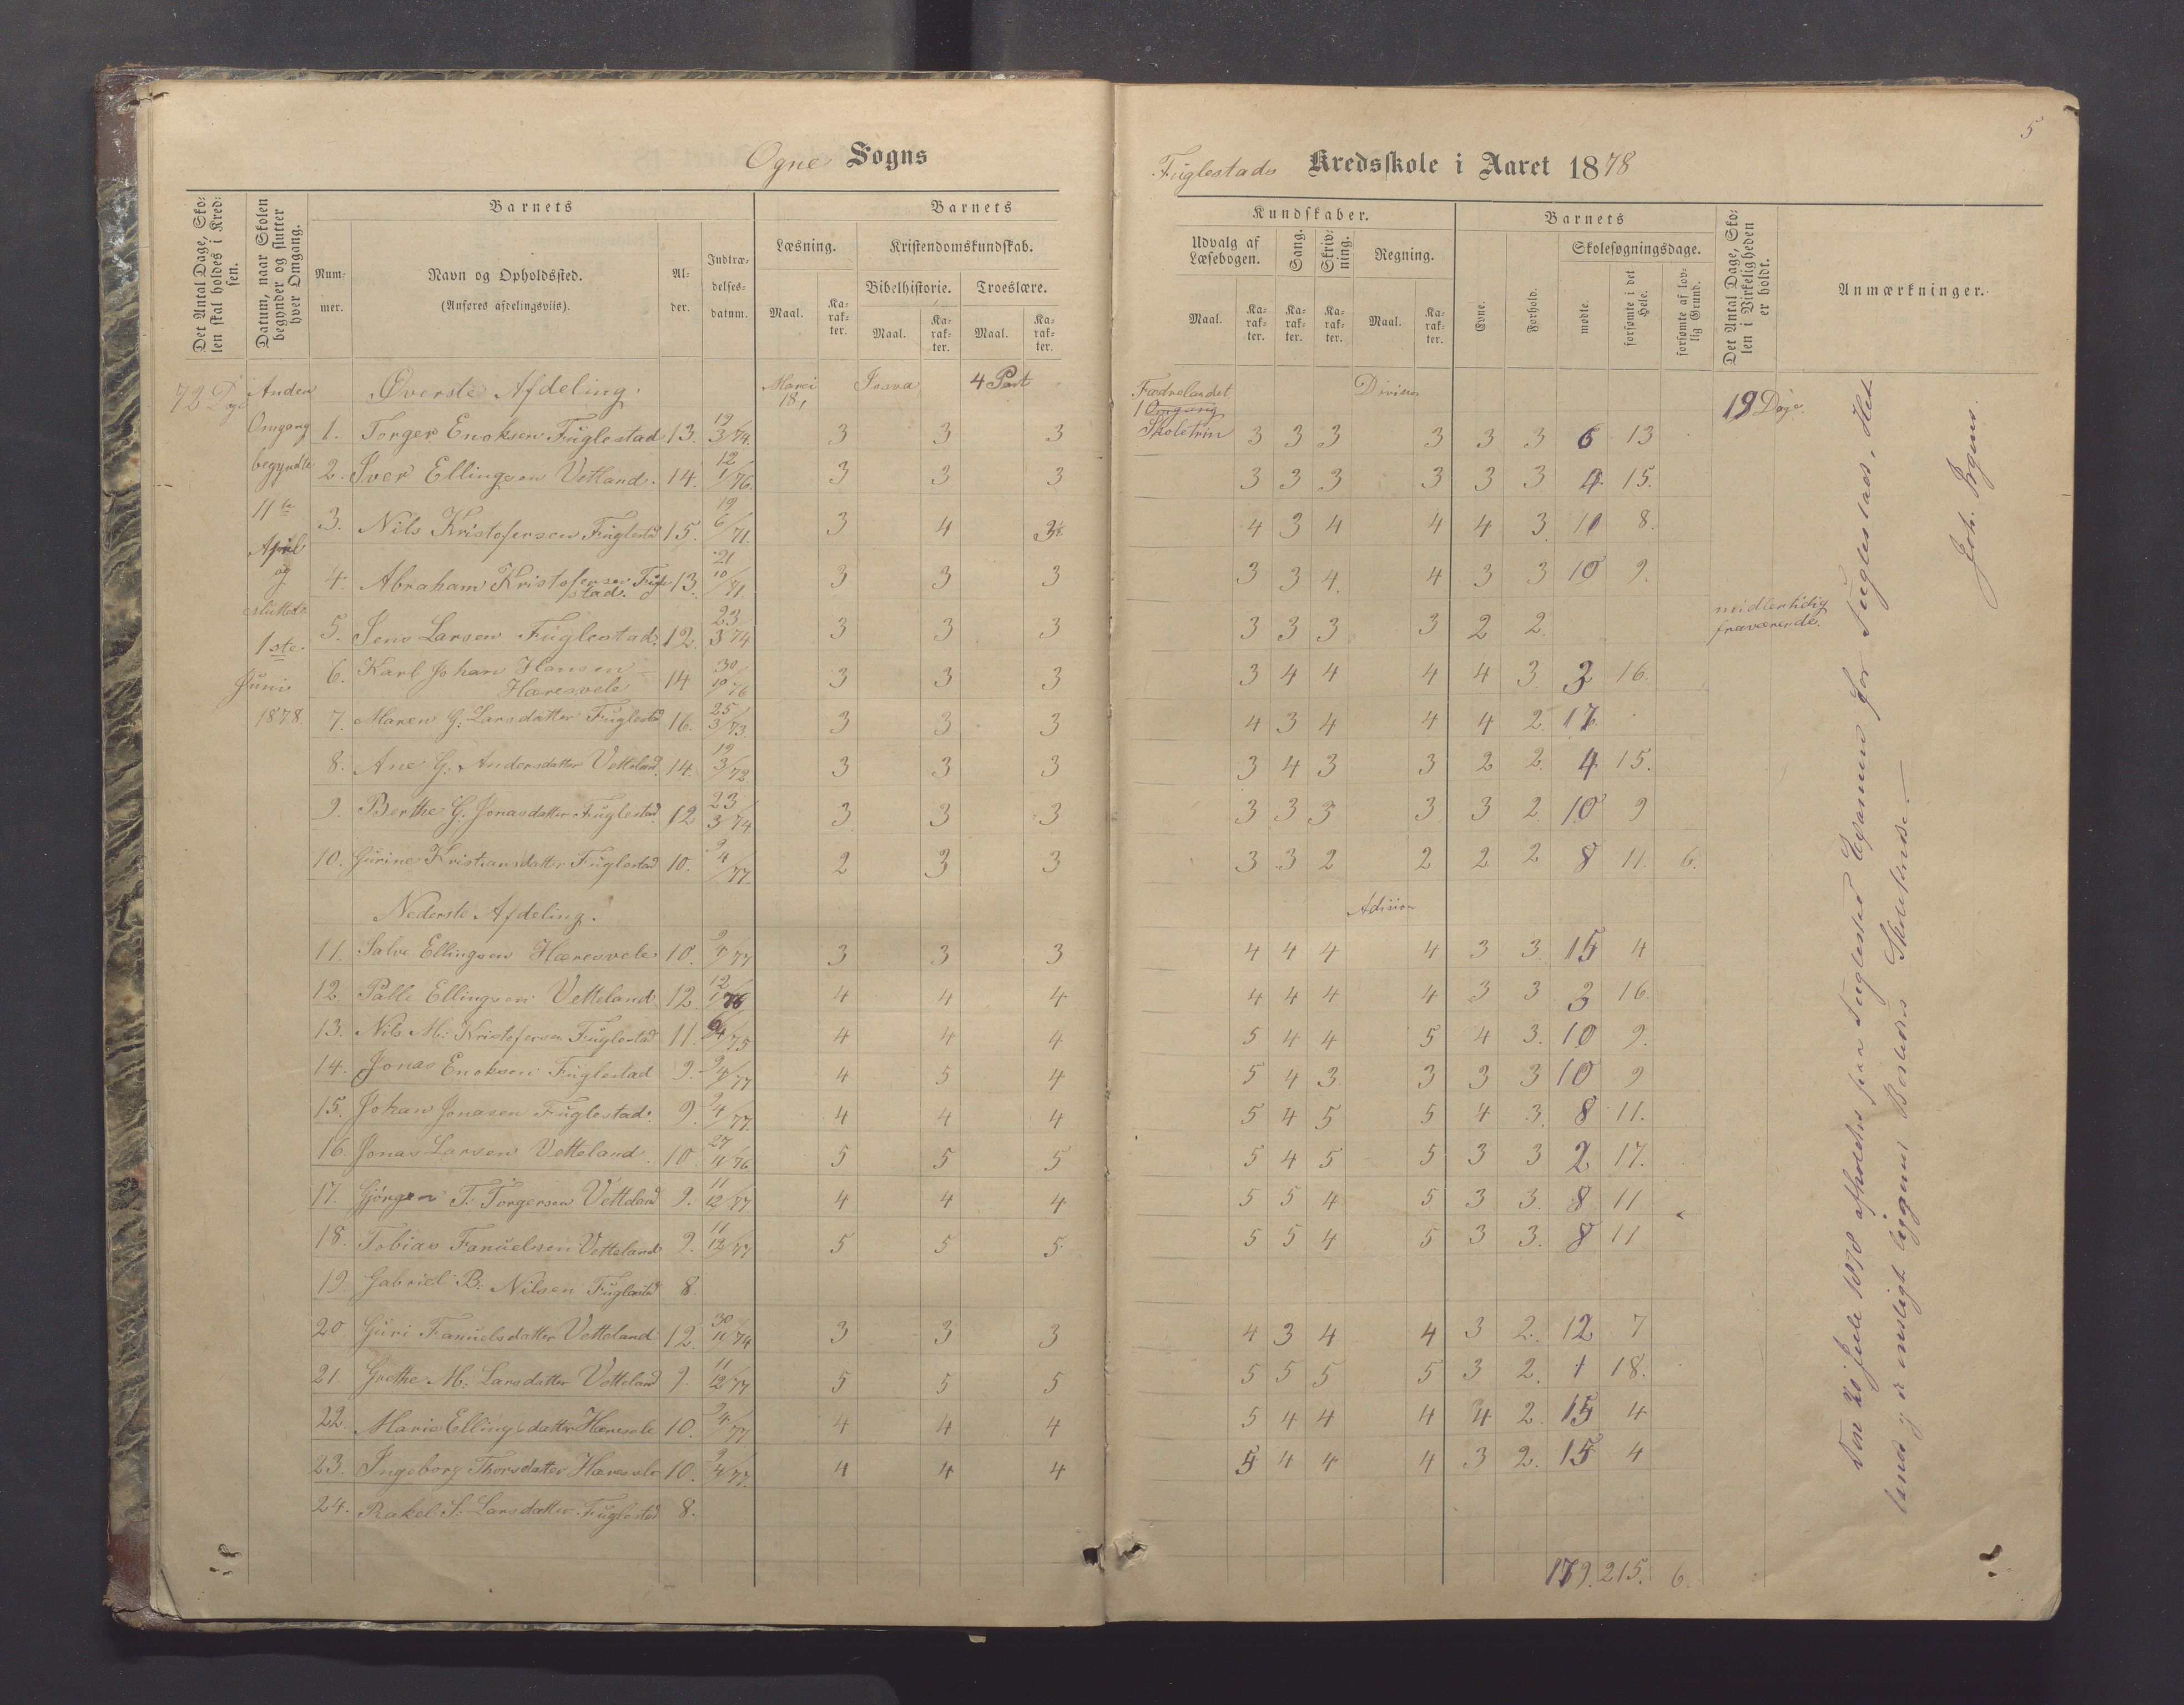 5
Ogne Sogns
Fuglestads Kredsskole i Aaret 1878
Det Antal Dage, Skolen skal holdes i Kredsen.
Datum, naar Skolen begynder og slutter hver Omgang.
Barnets
Nummer.
Navn og Opholdssted.
(Anføres afdelingsviis).
Alder.
Indtrædelsesdatum.
Barnets
Læsning.
Kristendomskundskab.
Bibelhistorie.
Troeslære.
Maal. Karakter. Maal. Karakter. Maal. Karakter.
Kundskaber.
Udvalg af Læsebogen.
Sang.
Skrivning.
Regning.
Maal. Karakter. Karakter. Karakter. Maal. Karakter.
Barnets
Evne.
Forhold.
Skolesøgningsdage.
mødte.
forsømte i det Hele.
forsømte af lovlig Grund.
Det Antal Dage, Skolen i Virkeligheden er holdt.
Anmærkninger.
72 Dage
Anden
Omgang
begyndte
11te
April
og
sluttede
1ste
Juni
1878.
Øverste Afdeling. Marci 18, Josva 4 Part Fædrelandet 1 Omgang Skoletrin Division 19 Dage.
1. Torger Enoksen Fuglestad 13. 19/3 74. 3 3 3 3 3 3 3 3 3 6 13
2. Iver Ellingsen Vetland. 14. 12/1 76. 3 3 3 3 3 3 3 3 3 4 15.
3. Nils Kristofersen Fuglestad 15. 19/6 71. 3 4 3 4 3 4 4 4 3. 11 8.
4. Abraham Kristofersen Fuglestad. 13. 21/10 71. 3 3 3 3 3 4. 4 3 3 10 9.
5. Jens Larsen Fuglestad. 12. 23/3 74 3 3 3 3 3 3 3 2 2. midlertidig fraværende.
6. Karl Johan Hansen Hæresvele 14 30/10 76 3 3 3 3 4 4 4 4 3 3 16.
7. Maren G. Larsdatter Fuglestad 16. 25/3 73. 3 3 3 4 3 4 4 4 2 17
8. Ane G. Andersdatter Vetteland. 14. 19/3 72. 3 3 3 3 4 3 3 2 2. 4 15.
9. Berthe G. Jonasdatter Fuglestad 12 23/3 74 3 3 3 3 3 3 3 3 2. 10 9
10. Gurine Kristiansdatter Fuglestad 10. 9/4 77. 2 3 3 3 3 2 2 2 2 8 11. 6.
Nederste Afdeling. Adision
11. Salve Ellingsen Hæresvele 10. 9/4 77 3 3 3 4 4 4 4 3 3. 15 4
12. Palle Ellingsen Vetteland 12. 12/1 76 4 4 4 4 4 4 4 3 3 3 16
13. Nils M. Kristofersen Fuglestad 11. 6/4 75 4 4 4 5 4 4 5 4 3. 10 9.
14. Jonas Enoksen Fuglestad 9. 9/4 77 4 5 4 5 4 3 3 3 3 10 9
15. Johan Jonasen Fuglestad. 9. 9/4 77. 4 4 4 5 4 5 5 4 3. 8 11.
16. Jonas Larsen Vetteland 10. 27/11 76 5 5 5 5 4 5 5 3 3 2 17.
17. Gjörgen T. Torgersen Vetteland 9. 11/12 77 4 4 4 5 5 4 5 3 3. 8 11
18. Tobias Fanuelsen Vetteland 9. 11/12 77 5 5 5 5 5 4 5 3 3. 8 11
19 Gabriel B. Nilsen Fuglestad 8.
20 Guri Fanuelsdatter Vetteland 12. 30/11 74 3 3 3 4 3 4 4 3 2. 12 7
21. Grethe M. Larsdatter Vetteland 9. 11/12 77 5 5 5 5 5 5 5 3 2. 1 18.
22. Marie Ellingsdatter Hæresvele 10. 9/4 77 4 4 4 5 4 4 4 4 2. 15 4
23. Ingeborg Thorsdatter Hæresvele 10. 9/4 77. 4 4 4 5 4 4 4 3 2. 15 4
24. Rakel S. Larsdatter Fuglestad 8.
179. 215. 6.
Den 20 Juli 1878 afholdtes paa Fuglestad Examen for Fuglestads, Het-
lands og Bosteds Skolekredse.—
Joh.